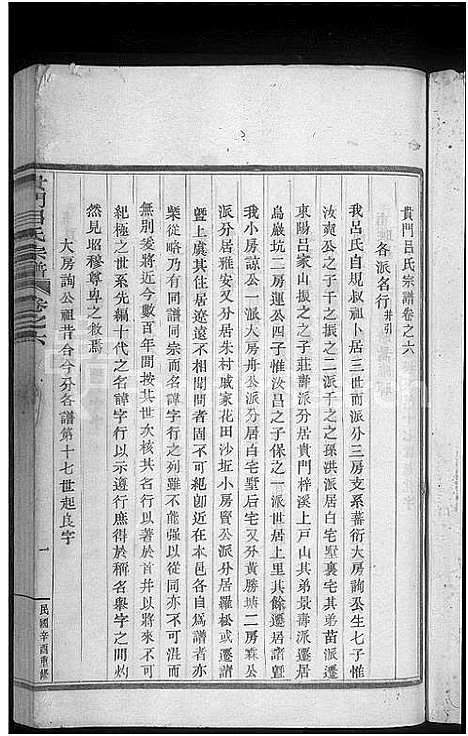 貴門呂氏宗譜卷之六
各派名行 并引
我呂氏自規叔祖卜居三世而派分三房支系蕃衍大房詢公生七子惟
汝雍公之子千之派居新昌二派千之之孫洪派居白宅墅裏宅其弟苗派遷
東陽呂家山振之之子莊壽派分居貴門梓溪上戶山其弟景壽派遷
烏巖坑二房運公四子惟汝昌之子保之一派世居上里其餘遷居諸暨
我小房諒公一派大房舟公派分居白宅墅后宅又分黃勝塘二房霖公
派分居雅安又分居朱村戚家花田沙坵小房賢公派分居羅松或遷諸
暨上虞其住居遼遠不相聞問者固不可紀卽近在本邑一自為譜者
槩從略乃有同譜同宗而名諱字行之列雖不能强以從同亦不可混而
無別爰將近今數百年間按其世次核其名行以著於首并以將來不可
紀極之世系先編十代之名諱字行以示遵行庶得於稱名舉字之間灼
然見昭穆尊卑之敘焉
大房詢公祖昔合今分各譜第十七世起良字
貴門呂氏宗譜 卷之六
一
民國辛酉重修